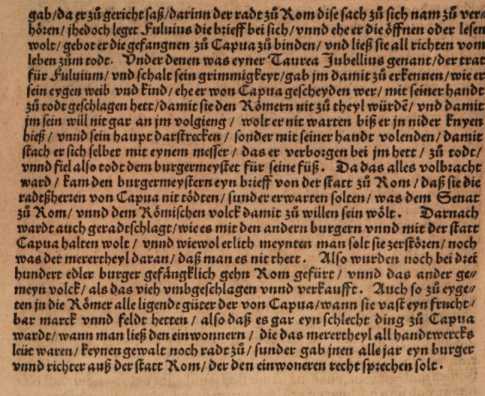 gab/da er zů gericht saß/darinn der radt zů Rom dise sach zů sich nam zů ver⸗
hören/ jhedoch leget Fuluius die brieff bei sich/ vnnd ehe er die öffnen oder lesen
wolt/ gebot er die gefangnen zů Capua zů binden/ vnd ließ sie all richten vom
leben zům todt. Vnder denen was eyner Taurea Jubellius genant/der trat
für Fuluium/ vnd schalt sein grimmigkeyt/gab jm damit zů erkennen/wie er
sein eygen weib vnd kind/ ehe er won Capua gescheyden wer/ mit seiner handt
zů todt geschlagen hett/damit sie den Römern nit zů theyl würdē/ vnd damit
jm sein will nit gar an jm volgieng/ wolt er nit warten biß er jn nider knyen
hieß/ vnnd sein haupt darstrecken/ sonder mit seiner handt volenden/damit
stach er sich selber mit eynem messer/ das er verborgen bei jm hett/ zů todt/
vnnd fiel also todt dem burgermeyster für seine füß. Da das alles volbracht
ward/ kam den burgermeystern eyn brieff von der statt zů Rom/ daß sie die
radtßherren von Capua nit tödten/ sunder erwarten solten/ was dem Senat
zů Rom/ vnnd dem Römischen volck damit zů willen sein wölt. Darnach
wardt auch geradtschlagt/wie es mit den andern burgern vnnd mit der statt
Capua halten wolt/ vnnd wiewol etlich meynten man solt sie zerstören/ noch
was der merertheyl daran/ daß man es nit thett. Also wurden noch bei drei
hundert edler burger gefängklich gehn Rom gefürt/ vnnd das ander ge⸗
meyn volck/ als das vieh vmbgeschlagen vnnd verkaufft. Auch so zů eyge⸗
ten in die Römer alle ligende güter der von Capua/wann sie vast eyn frucht⸗
bar marck vnnd feldt hetten/ also daß es gar eyn schlecht ding zů Capua
wardt/wann man ließ den einwonnern/ die das merertheyl all handtwercks
leüt waren/keynen gewalt noch radt zů/ sunder gab jnen alle jar eyn burger
vnnd richter auß der statt Rom/der den einwoneren recht sprechen solt.